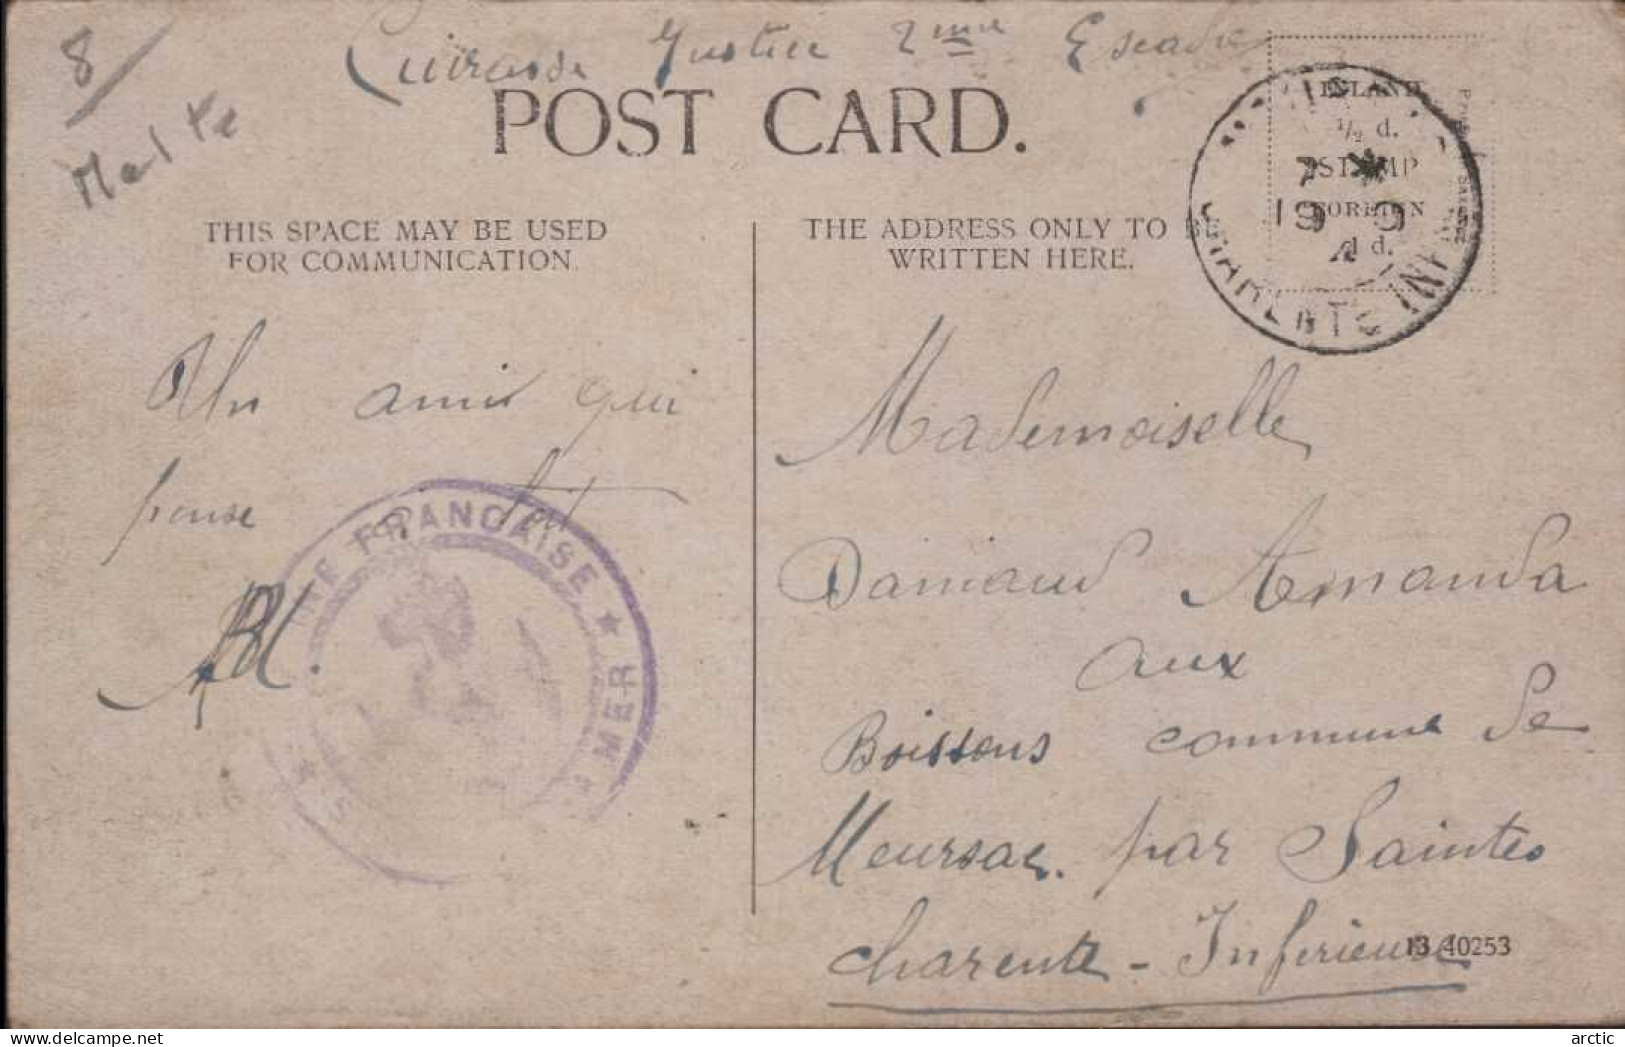 8
Malte
Cuirassé Justice 2me Escadre
POST CARD.
THIS SPACE MAY BE USED
FOR COMMUNICATION.
THE ADDRESS ONLY TO BE
WRITTEN HERE.
INLAND
½ d.
STAMP
FOREIGN
1 d.
7 *
19 9
CHARENTE INF
Un ami qui
pense
FRANCAISE ★
MER
Mademoiselle
Daniaud Amanda
aux
Boissons commune de
Meursac par Saintes
Charente - Inférieure
13 40253
delcampe.net
arctic